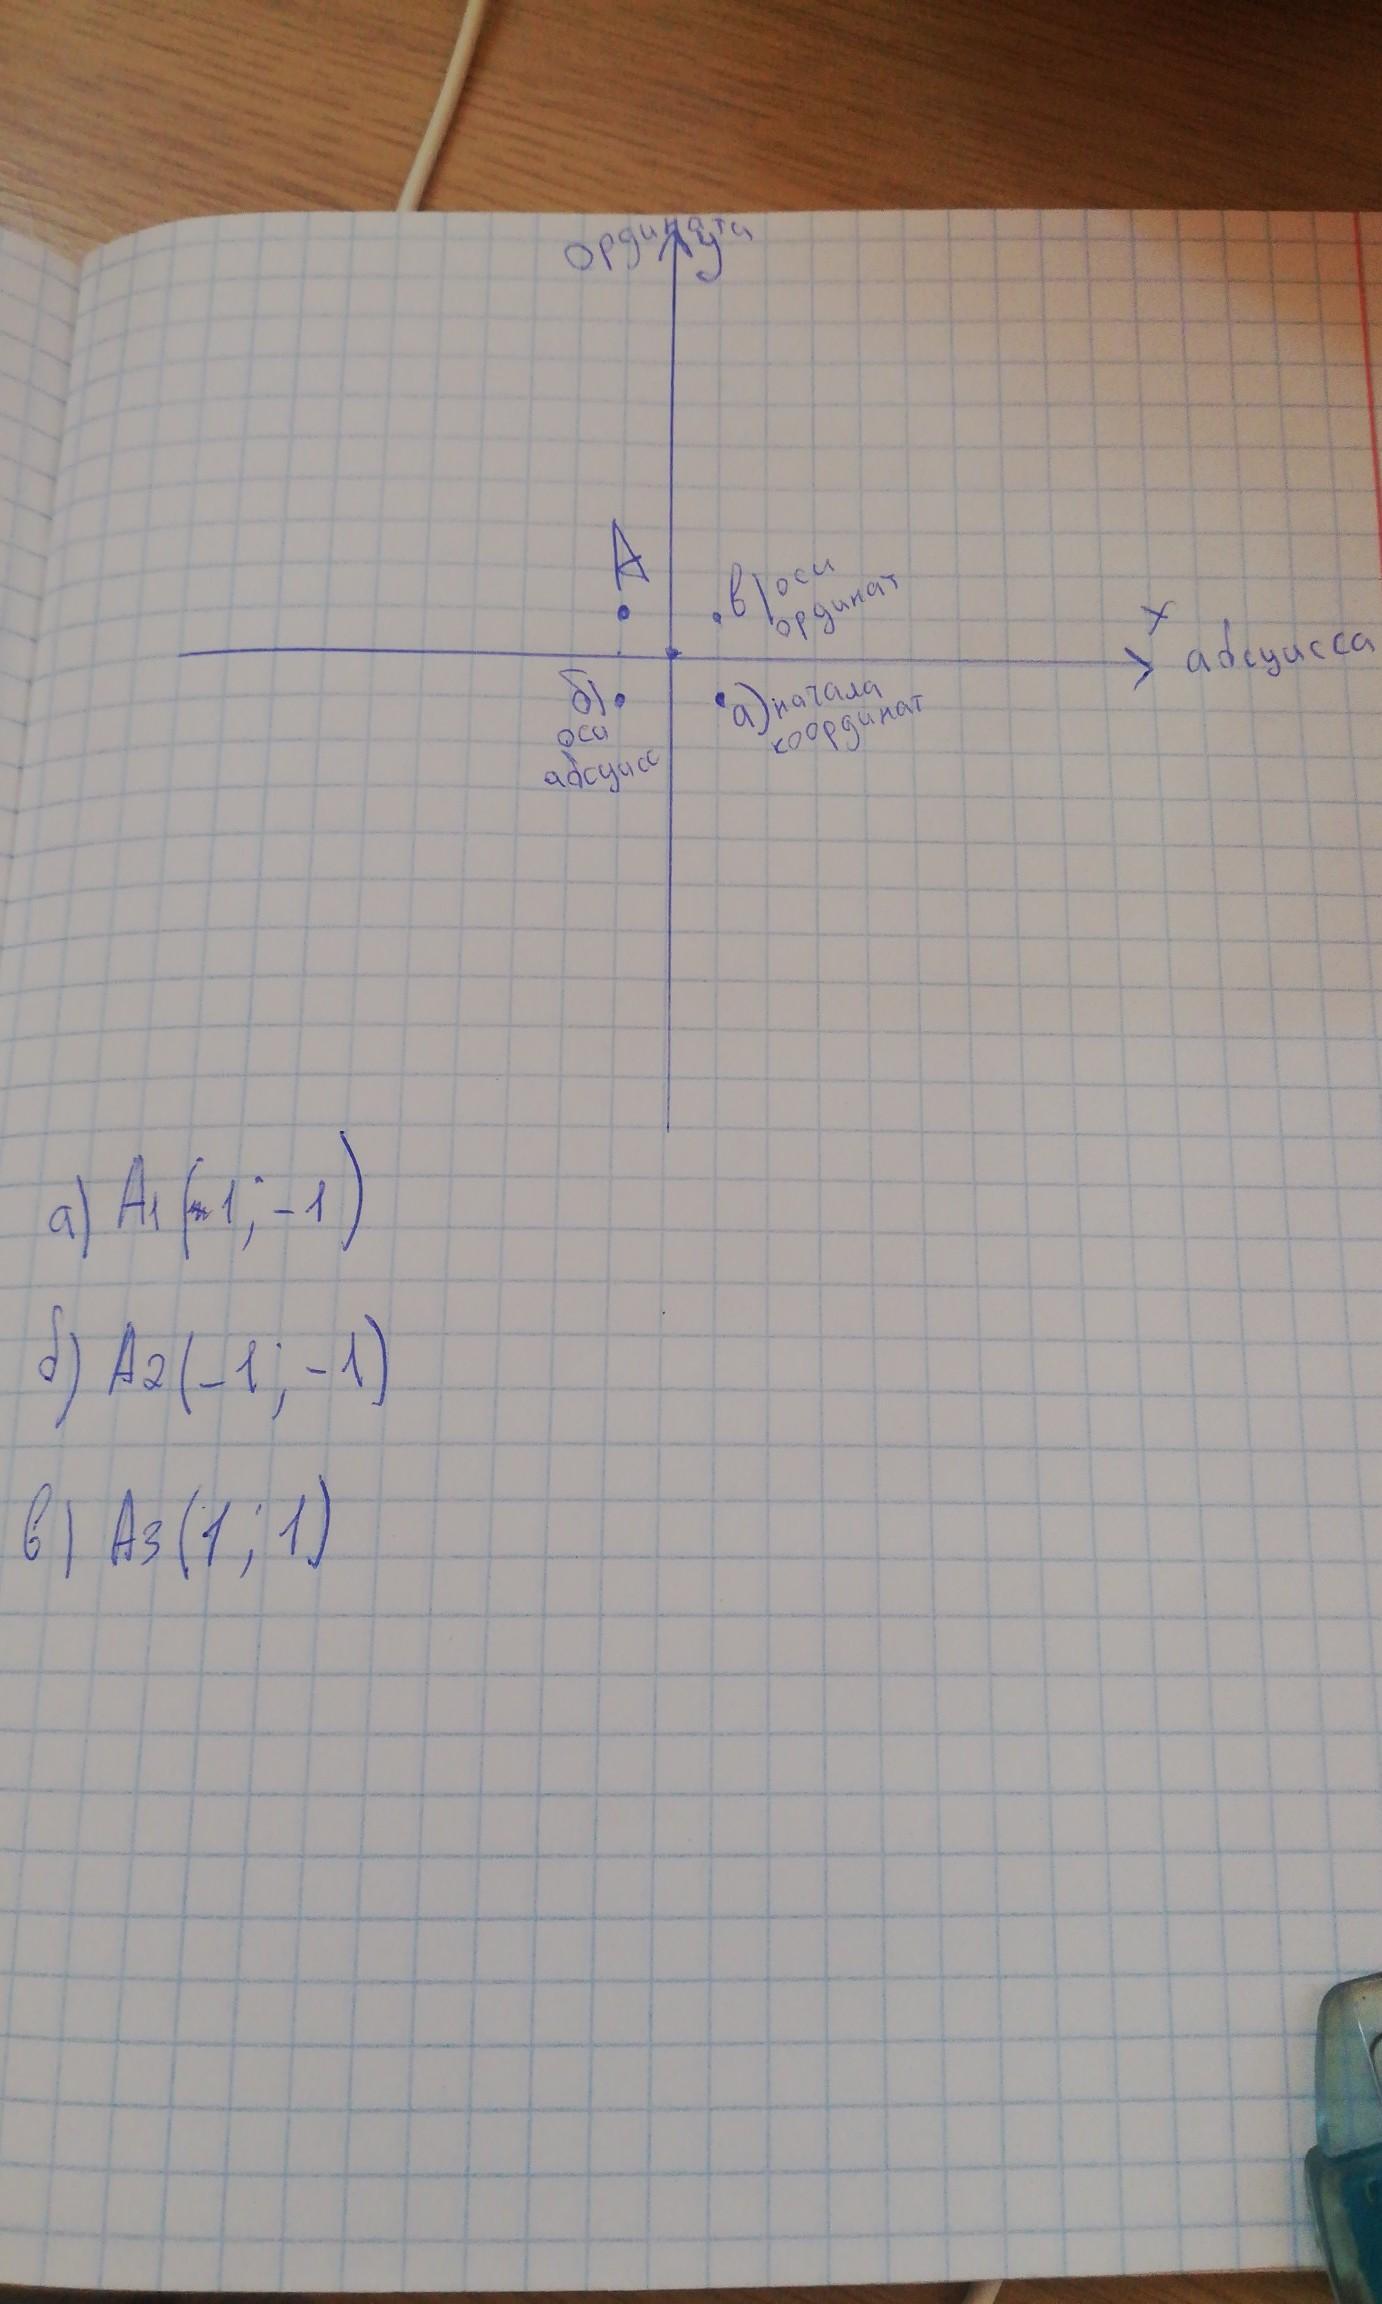 ордината
y
A
в) оси
ординат
x
абсцисса
б)
оси
абсцисс
а) начала
координат
а) A1 (-1; -1)
б) A2 (-1; -1)
в) A3 (1; 1)